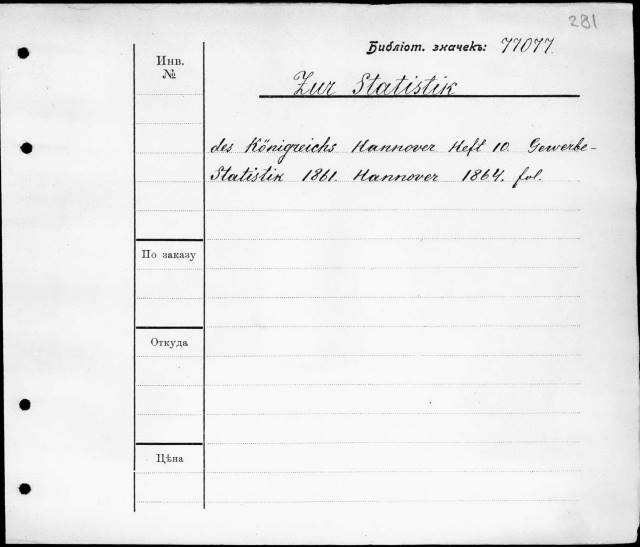 281
Библіот. значекъ: 77077.
Инв.
№
Zur Statistik
des Königreichs Hannover Heft 10. Gewerbe-
Statistik 1861. Hannover 1864. fol.
По заказу
Откуда
Цѣна